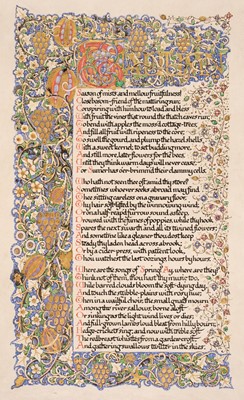 Season of mists and mellow fruitfulness!
Close bosom-friend of the maturing sun;
Conspiring with him how to load and bless
With fruit the vines that round the thatch-eaves run;
To bend with apples the moss'd cottage-trees,
And fill all fruit with ripeness to the core;
To swell the gourd, and plump the hazel shells
With a sweet kernel; to set budding more,
And still more, later flowers for the bees,
Until they think warm days will never cease,
For Summer has o'er-brimm'd their clammy cells.
Who hath not seen thee oft amid thy store?
Sometimes whoever seeks abroad may find
Thee sitting careless on a granary floor,
Thy hair soft-lifted by the winnowing wind;
Or on a half-reap'd furrow sound asleep,
Drowsed with the fumes of poppies, while thy hook
Spares the next swath and all its twined flowers;
And sometime like a gleaner thou dost keep
Steady thy laden head across a brook;
Or by a cider-press, with patient look,
Thou watchest the last oozings, hours by hours.
Where are the songs of Spring? Ay, where are they?
Think not of them, thou hast thy music too,
While barred clouds bloom the soft-dying day,
And touch the stubble-plains with rosy hue;
Then in a wailful choir, the small gnats mourn
Among the river sallows, borne aloft
Or sinking as the light wind lives or dies;
And full-grown lambs loud bleat from hilly bourn;
Hedge-crickets sing; and now with treble soft
The redbreast whistles from a garden-croft;
And gathering swallows twitter in the skies.